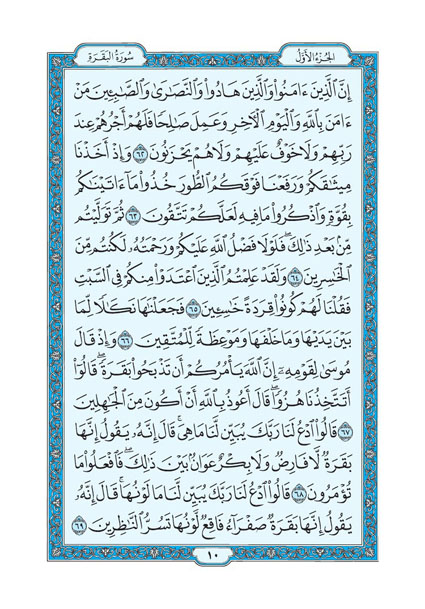 الجزء الأول
سورة البقرة
إِنَّ ٱلَّذِينَ ءَامَنُوا۟ وَٱلَّذِينَ هَادُوا۟ وَٱلنَّصَٰرَىٰ وَٱلصَّٰبِـِٔينَ مَنْ
ءَامَنَ بِٱللَّهِ وَٱلْيَوْمِ ٱلْـَٔاخِرِ وَعَمِلَ صَٰلِحًا فَلَهُمْ أَجْرُهُمْ عِندَ
رَبِّهِمْ وَلَا خَوْفٌ عَلَيْهِمْ وَلَا هُمْ يَحْزَنُونَ ٦٢ وَإِذْ أَخَذْنَا
مِيثَٰقَكُمْ وَرَفَعْنَا فَوْقَكُمُ ٱلطُّورَ خُذُوا۟ مَآ ءَاتَيْنَٰكُم
بِقُوَّةٍ وَٱذْكُرُوا۟ مَا فِيهِ لَعَلَّكُمْ تَتَّقُونَ ٦٣ ثُمَّ تَوَلَّيْتُم
مِّنۢ بَعْدِ ذَٰلِكَ ۖ فَلَوْلَا فَضْلُ ٱللَّهِ عَلَيْكُمْ وَرَحْمَتُهُۥ لَكُنتُم مِّنَ
ٱلْخَٰسِرِينَ ٦٤ وَلَقَدْ عَلِمْتُمُ ٱلَّذِينَ ٱعْتَدَوْا۟ مِنكُمْ فِى ٱلسَّبْتِ
فَقُلْنَا لَهُمْ كُونُوا۟ قِرَدَةً خَٰسِـِٔينَ ٦٥ فَجَعَلْنَٰهَا نَكَٰلًا لِّمَا
بَيْنَ يَدَيْهَا وَمَا خَلْفَهَا وَمَوْعِظَةً لِّلْمُتَّقِينَ ٦٦ وَإِذْ قَالَ
مُوسَىٰ لِقَوْمِهِۦٓ إِنَّ ٱللَّهَ يَأْمُرُكُمْ أَن تَذْبَحُوا۟ بَقَرَةً ۖ قَالُوٓا۟
أَتَتَّخِذُنَا هُزُوًا ۖ قَالَ أَعُوذُ بِٱللَّهِ أَنْ أَكُونَ مِنَ ٱلْجَٰهِلِينَ
٦٧ قَالُوا۟ ٱدْعُ لَنَا رَبَّكَ يُبَيِّن لَّنَا مَا هِىَ ۚ قَالَ إِنَّهُۥ يَقُولُ إِنَّهَا
بَقَرَةٌ لَّا فَارِضٌ وَلَا بِكْرٌ عَوَانٌۢ بَيْنَ ذَٰلِكَ ۖ فَٱفْعَلُوا۟ مَا
تُؤْمَرُونَ ٦٨ قَالُوا۟ ٱدْعُ لَنَا رَبَّكَ يُبَيِّن لَّنَا مَا لَوْنُهَا ۚ قَالَ إِنَّهُۥ
يَقُولُ إِنَّهَا بَقَرَةٌ صَفْرَآءُ فَاقِعٌ لَّوْنُهَا تَسُرُّ ٱلنَّٰظِرِينَ ٦٩
١٠